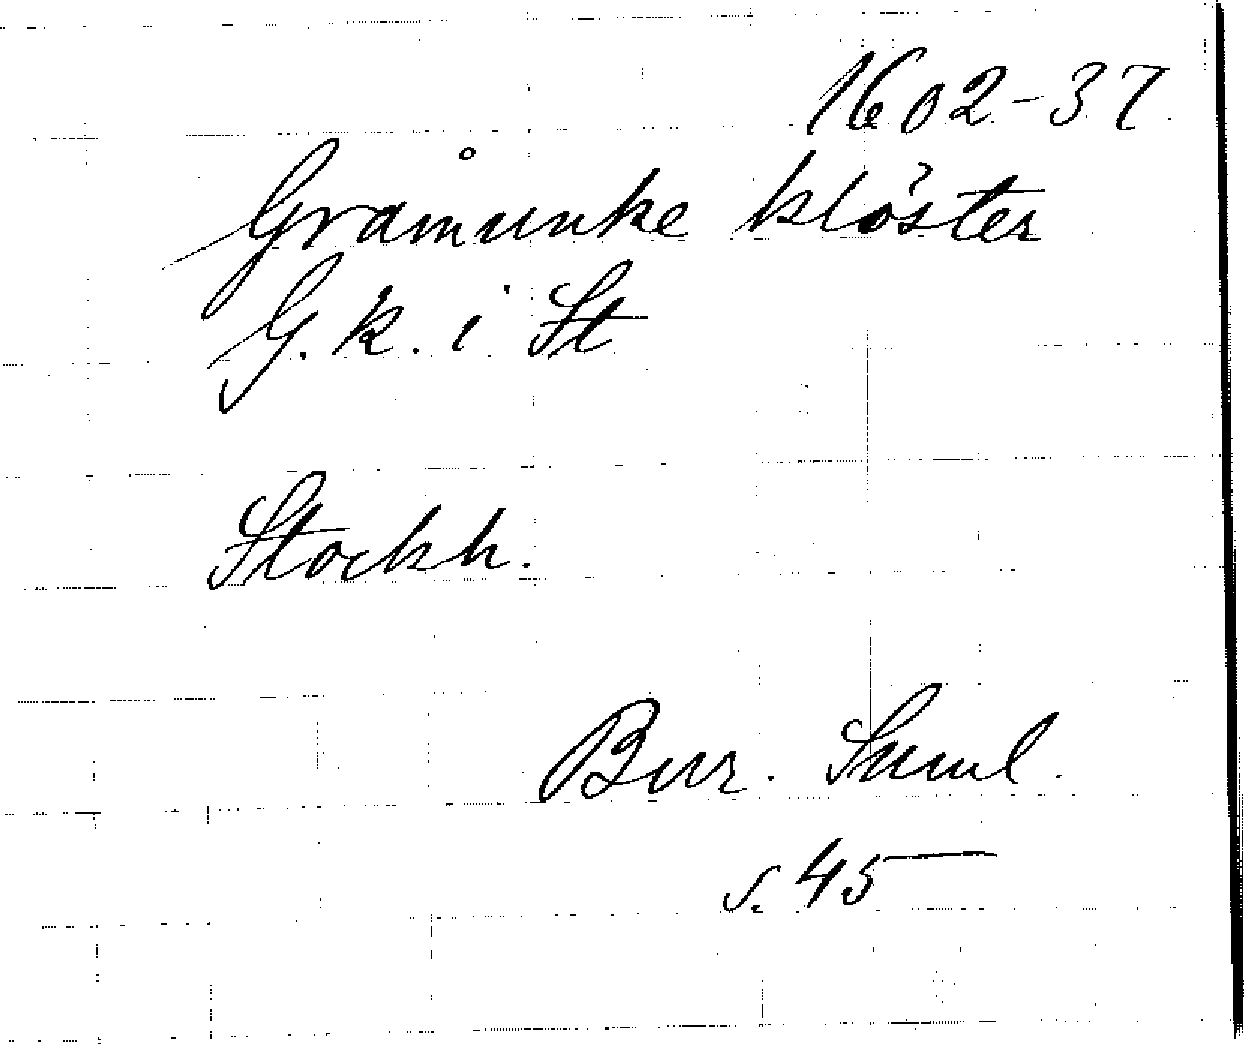 1602-37
Gråmunke klöster
G.k. i St
Stockh.
Bur. Saml.
s. 45